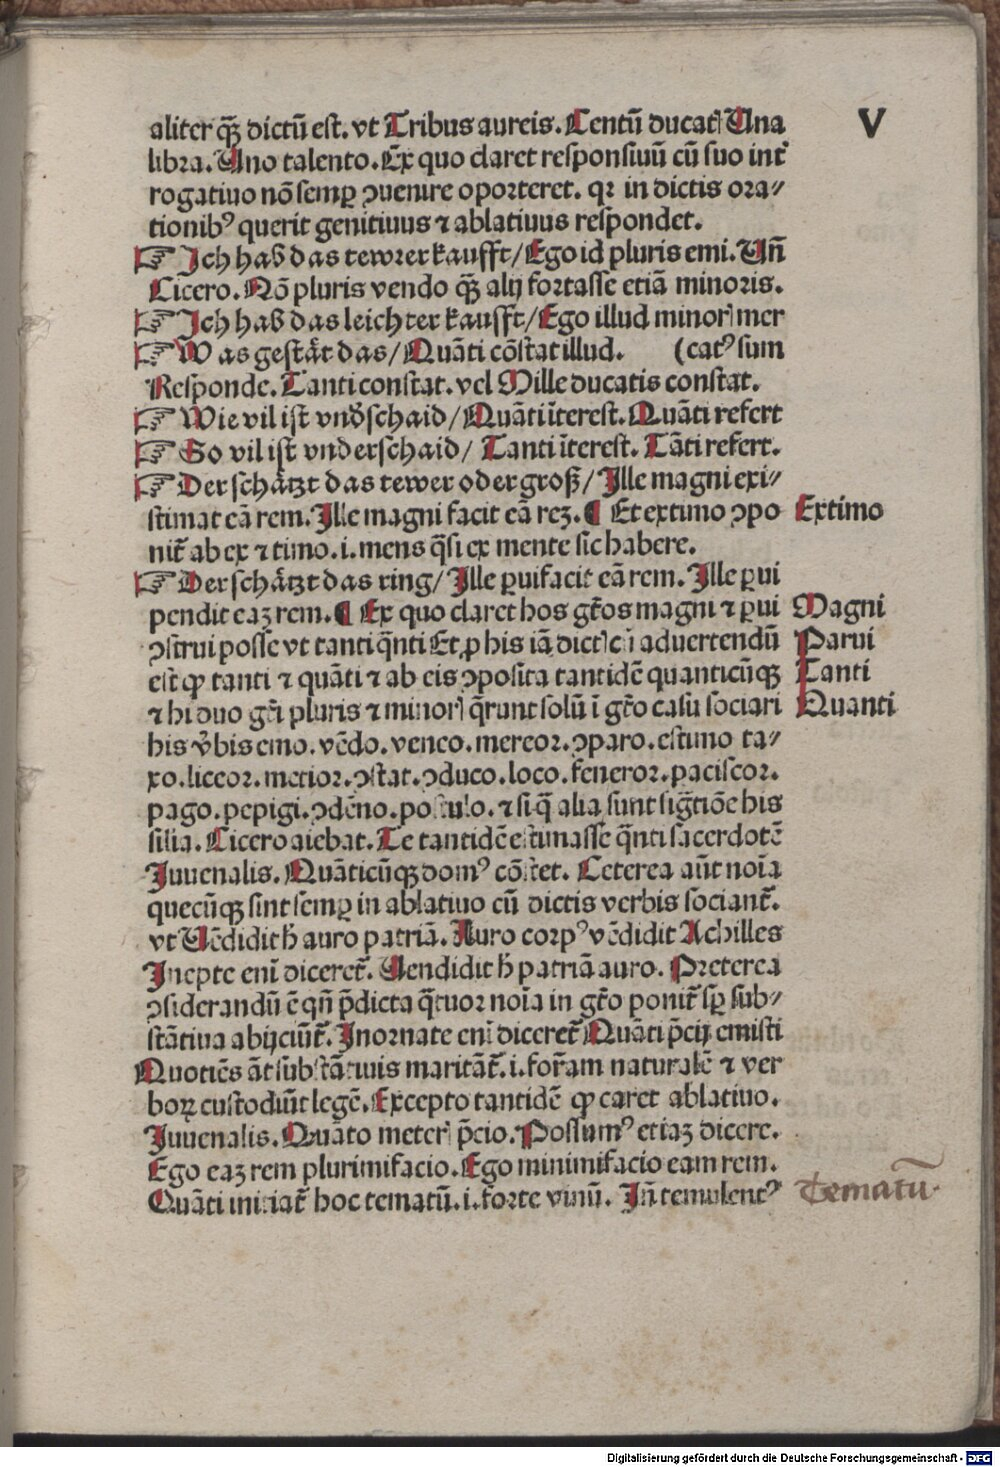 V
aliter qꝫ̃ dictū est. vt Tribus aureis. Centū ducatꝭ Una
libra. Uno talento. Ex quo claret responsiuū cū suo int̾
rogatiuo nō semꝑ ꝯuenire oporteret. qꝛ in dictis ora⸗
tionibꝰ querit genitiuus ⁊ ablatiuus respondet.
☞ Jch hab das tewrer kaufft/ Ego id pluris emi. Un̄
Cicero. Nō pluris vendo qꝫ̃ alij fortasse etiā minoris.
☞ Jch hab das leichter kaufft/ Ego illud minorꝭ mer
☞ Was gestät das/ Quāti cōstat illud. (catꝰ sum
Responde. Tanti constat. vel Mille ducatis constat.
☞ Wie vil ist vnd̾schaid/ Quāti īterest. Quāti refert
☞ So vil ist vnderschaid/ Tanti īterest. Tāti refert.
☞ Der schätzt das tewer oder groß/ Jlle magni exi⸗
stimat eā rem. Jlle magni facit eā reꝫ. ¶ Et extimo ꝯpo
Extimo
nit̄ ab ex ⁊ timo. i. mens q̄si ex mente sic habere.
☞ Der schätzt das ring/ Jlle ꝑuifacit eā rem. Jlle ꝑui
pendit eaꝫ rem. ¶ Ex quo claret hos gt̄os magni ⁊ ꝑui
Magni
ꝯstrui posse vt tanti q̄nti Et ꝓ his iā dictꝭ eī aduertendū
Parui
est ꝙ tanti ⁊ quāti ⁊ ab eis ꝯposita tantidē quanticūqꝫ
Tanti
⁊ hi duo gt̄i pluris ⁊ minorꝭ q̄runt solū ī gt̄o casu sociari
Quanti
his v̾bis emo. vēdo. veneo. mereor. ꝯparo. estimo ta⸗
xo. liceor. metior. ꝯstat. ꝯduco. loco. feneror. paciscor.
pago. pepigi. ꝯdēno. postulo. ⁊ si q̄ alia sunt siḡtiōe his
silia. Cicero aiebat. Te tantidē estimasse q̄nti sacerdotē
Juuenalis. Quāticūqꝫ domꝰ cōstet. Ceterea aūt noīa
quecūqꝫ sint semꝑ in ablatiuo cū dictis verbis sociant̄.
vt Uēdidit h̄ auro patriā. Auro corpꝰ vēdidit Achilles
Jnepte enī diceret̄. Uendidit h̄ patriā auro. Preterea
ꝯsiderandū ē qn̄ p̄dicta q̄tuor noīa in gt̄o ponit̄ sꝑ sub⸗
stātiua abijciūt̄. Jnornate enī diceret̄ Quāti p̄cij emisti
Quotiēs āt substātiuis maritāt̄. i. for̄am naturalē ⁊ ver
boꝝ custodiūt legē. Excepto tantidē ꝙ caret ablatiuo.
Juuenalis. Quāto meterꝭ p̄cio. Possumꝰ etiaꝫ dicere.
Ego eaꝫ rem plurimifacio. Ego minimifacio eam rem.
Quāti iniciat̄ hoc tematū. i. forte vinū. Jn̄ temulentꝰ
Tematū.
Digitalisierung gefördert durch die Deutsche Forschungsgemeinschaft - DFG